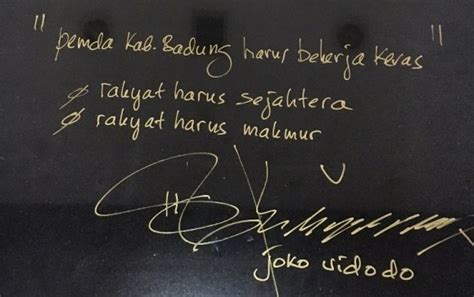 "pemda Kab. Badung harus bekerja keras"
ø rakyat harus sejahtera
ø rakyat harus makmur
joko widodo